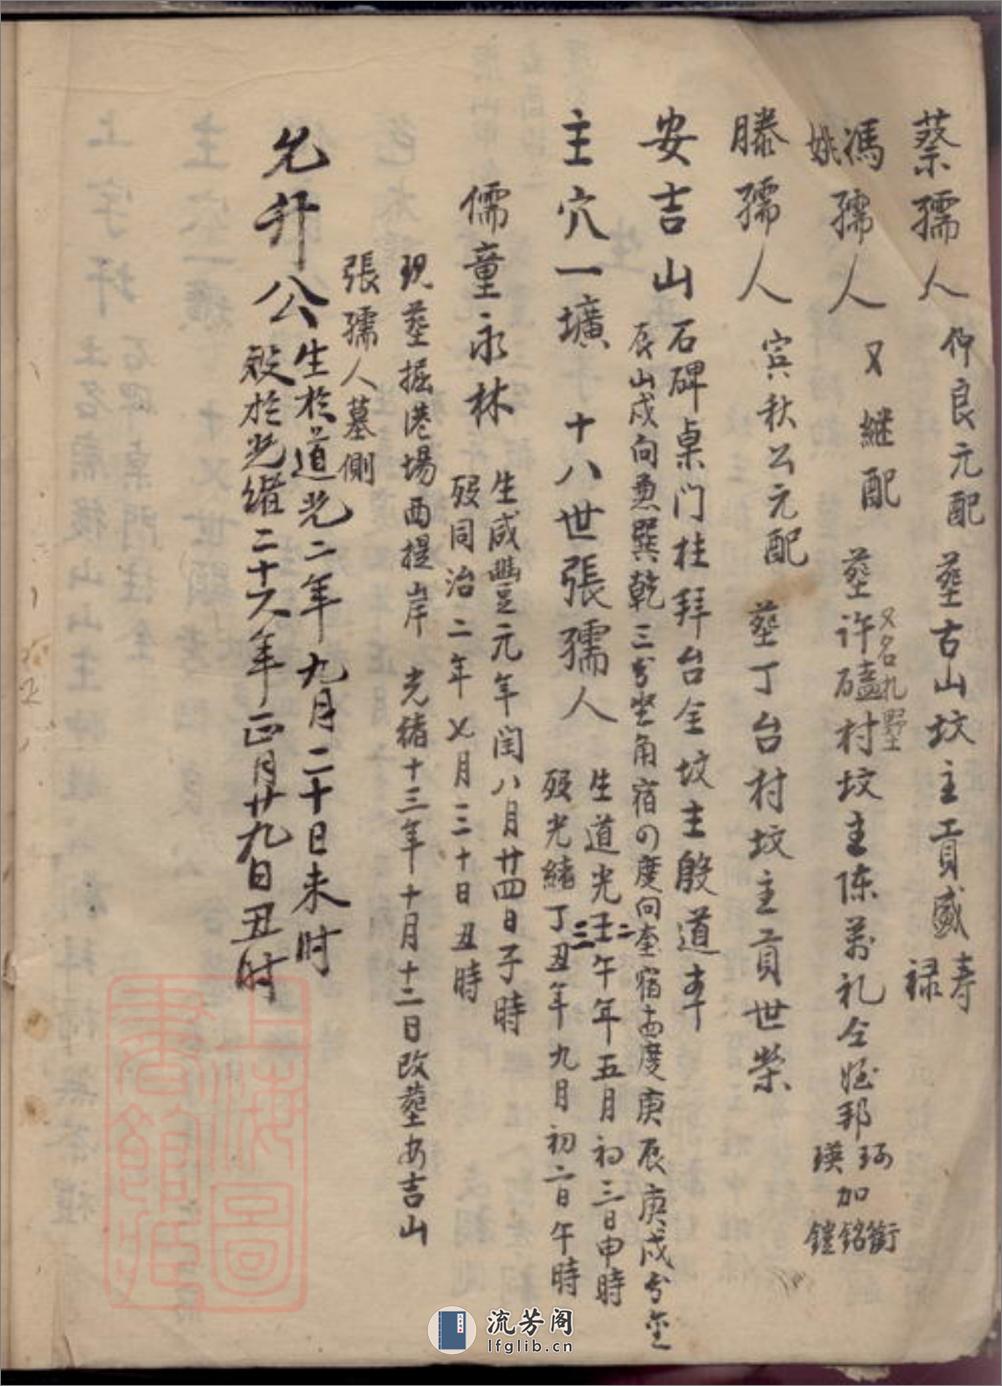 蔡孺人 仰良元配 塟古山坟主貢盛壽祿
馮姚孺人 又継配 塟许磕村坟主陈萬礼仝姪邦珂瑛加衡銘鐘
又名札墅
滕孺人 宾秋公元配 塟丁台村坟主貢世榮
安吉山 石碑桌门柱拜台全坟主殷道
辰山戌向兼巽乾三分坐角宿の度向奎宿度庚辰庚戌分金
主穴一壙 十八世張孺人 生道光壬午二年五月初三日申時
殁光緒丁丑三年九月初六日午時
儒童永林 生咸豐元年闰八月廿四日子時
殁同治二年七月三十日丑時
现塟掘港場西提岸 光緒十三年十月十二日改塟安吉山
張孺人墓側
允升公 生於道光二年九月二十日未时
殁於光緒二十六年正月廿九日丑时
上海圖書館藏
流芳阁
lfglib.cn